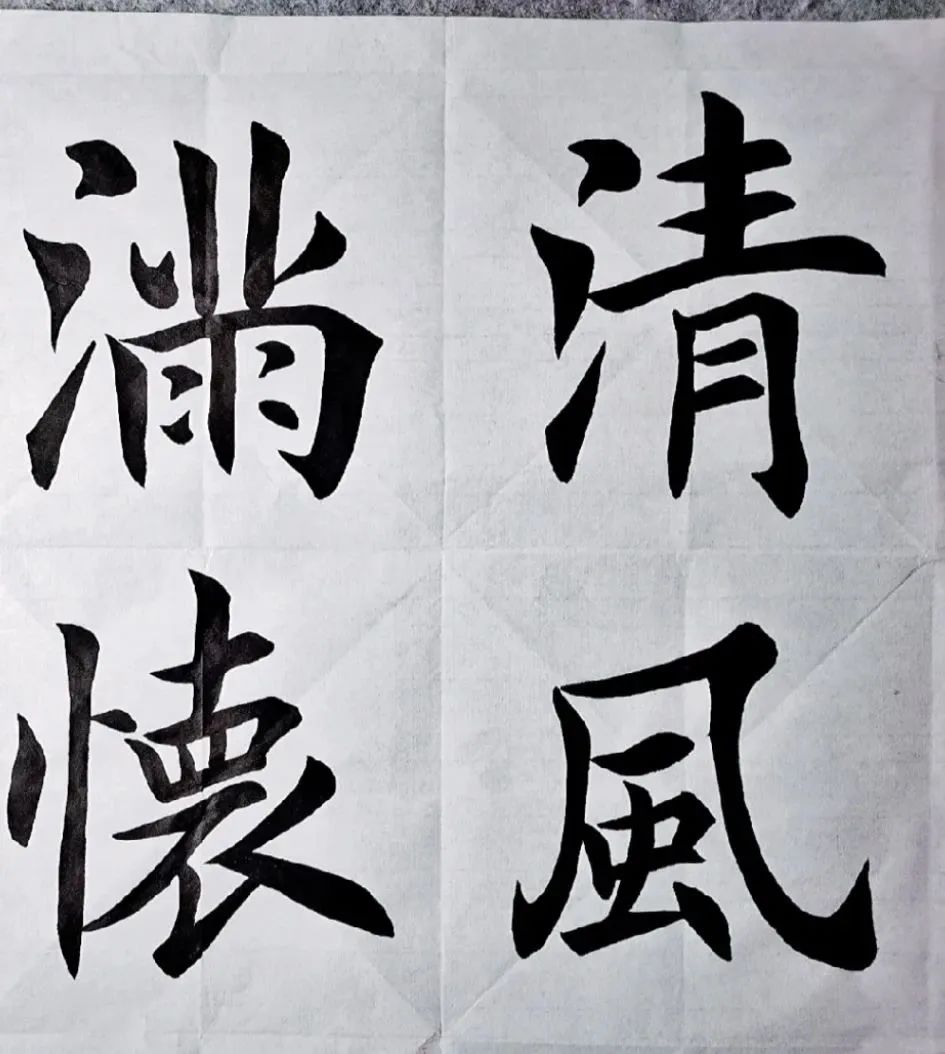 清風
滿懷